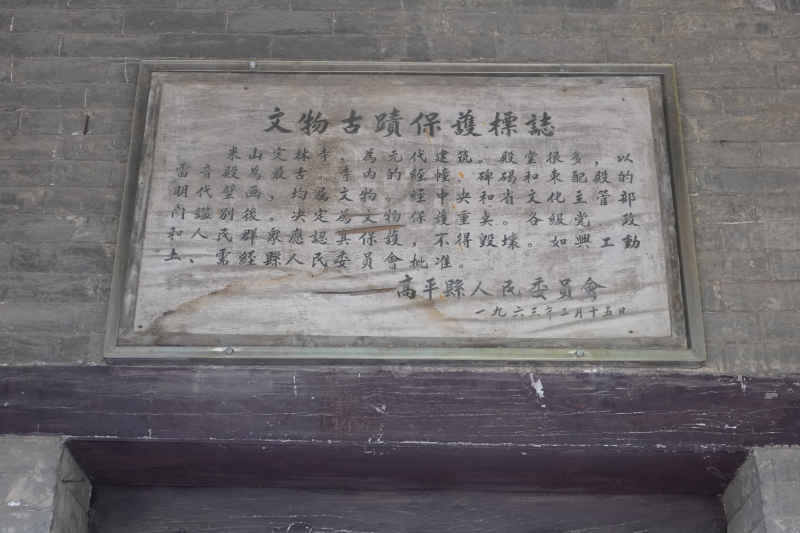 文物古蹟保護標誌
米山定林寺，為元代建筑。殿堂很多，以
雷音殿為最古 寺內的經幢、碑碣和東配殿的
明代壁画，均屬文物。經中央和省文化主管部
門鑑别後。决定為文物保護重点。各級党 政
和人民群眾應認真保護，不得毀壞。如興工動
土、需經縣人民委員會批准。
高平縣人民委員會
一九六三年三月十五日